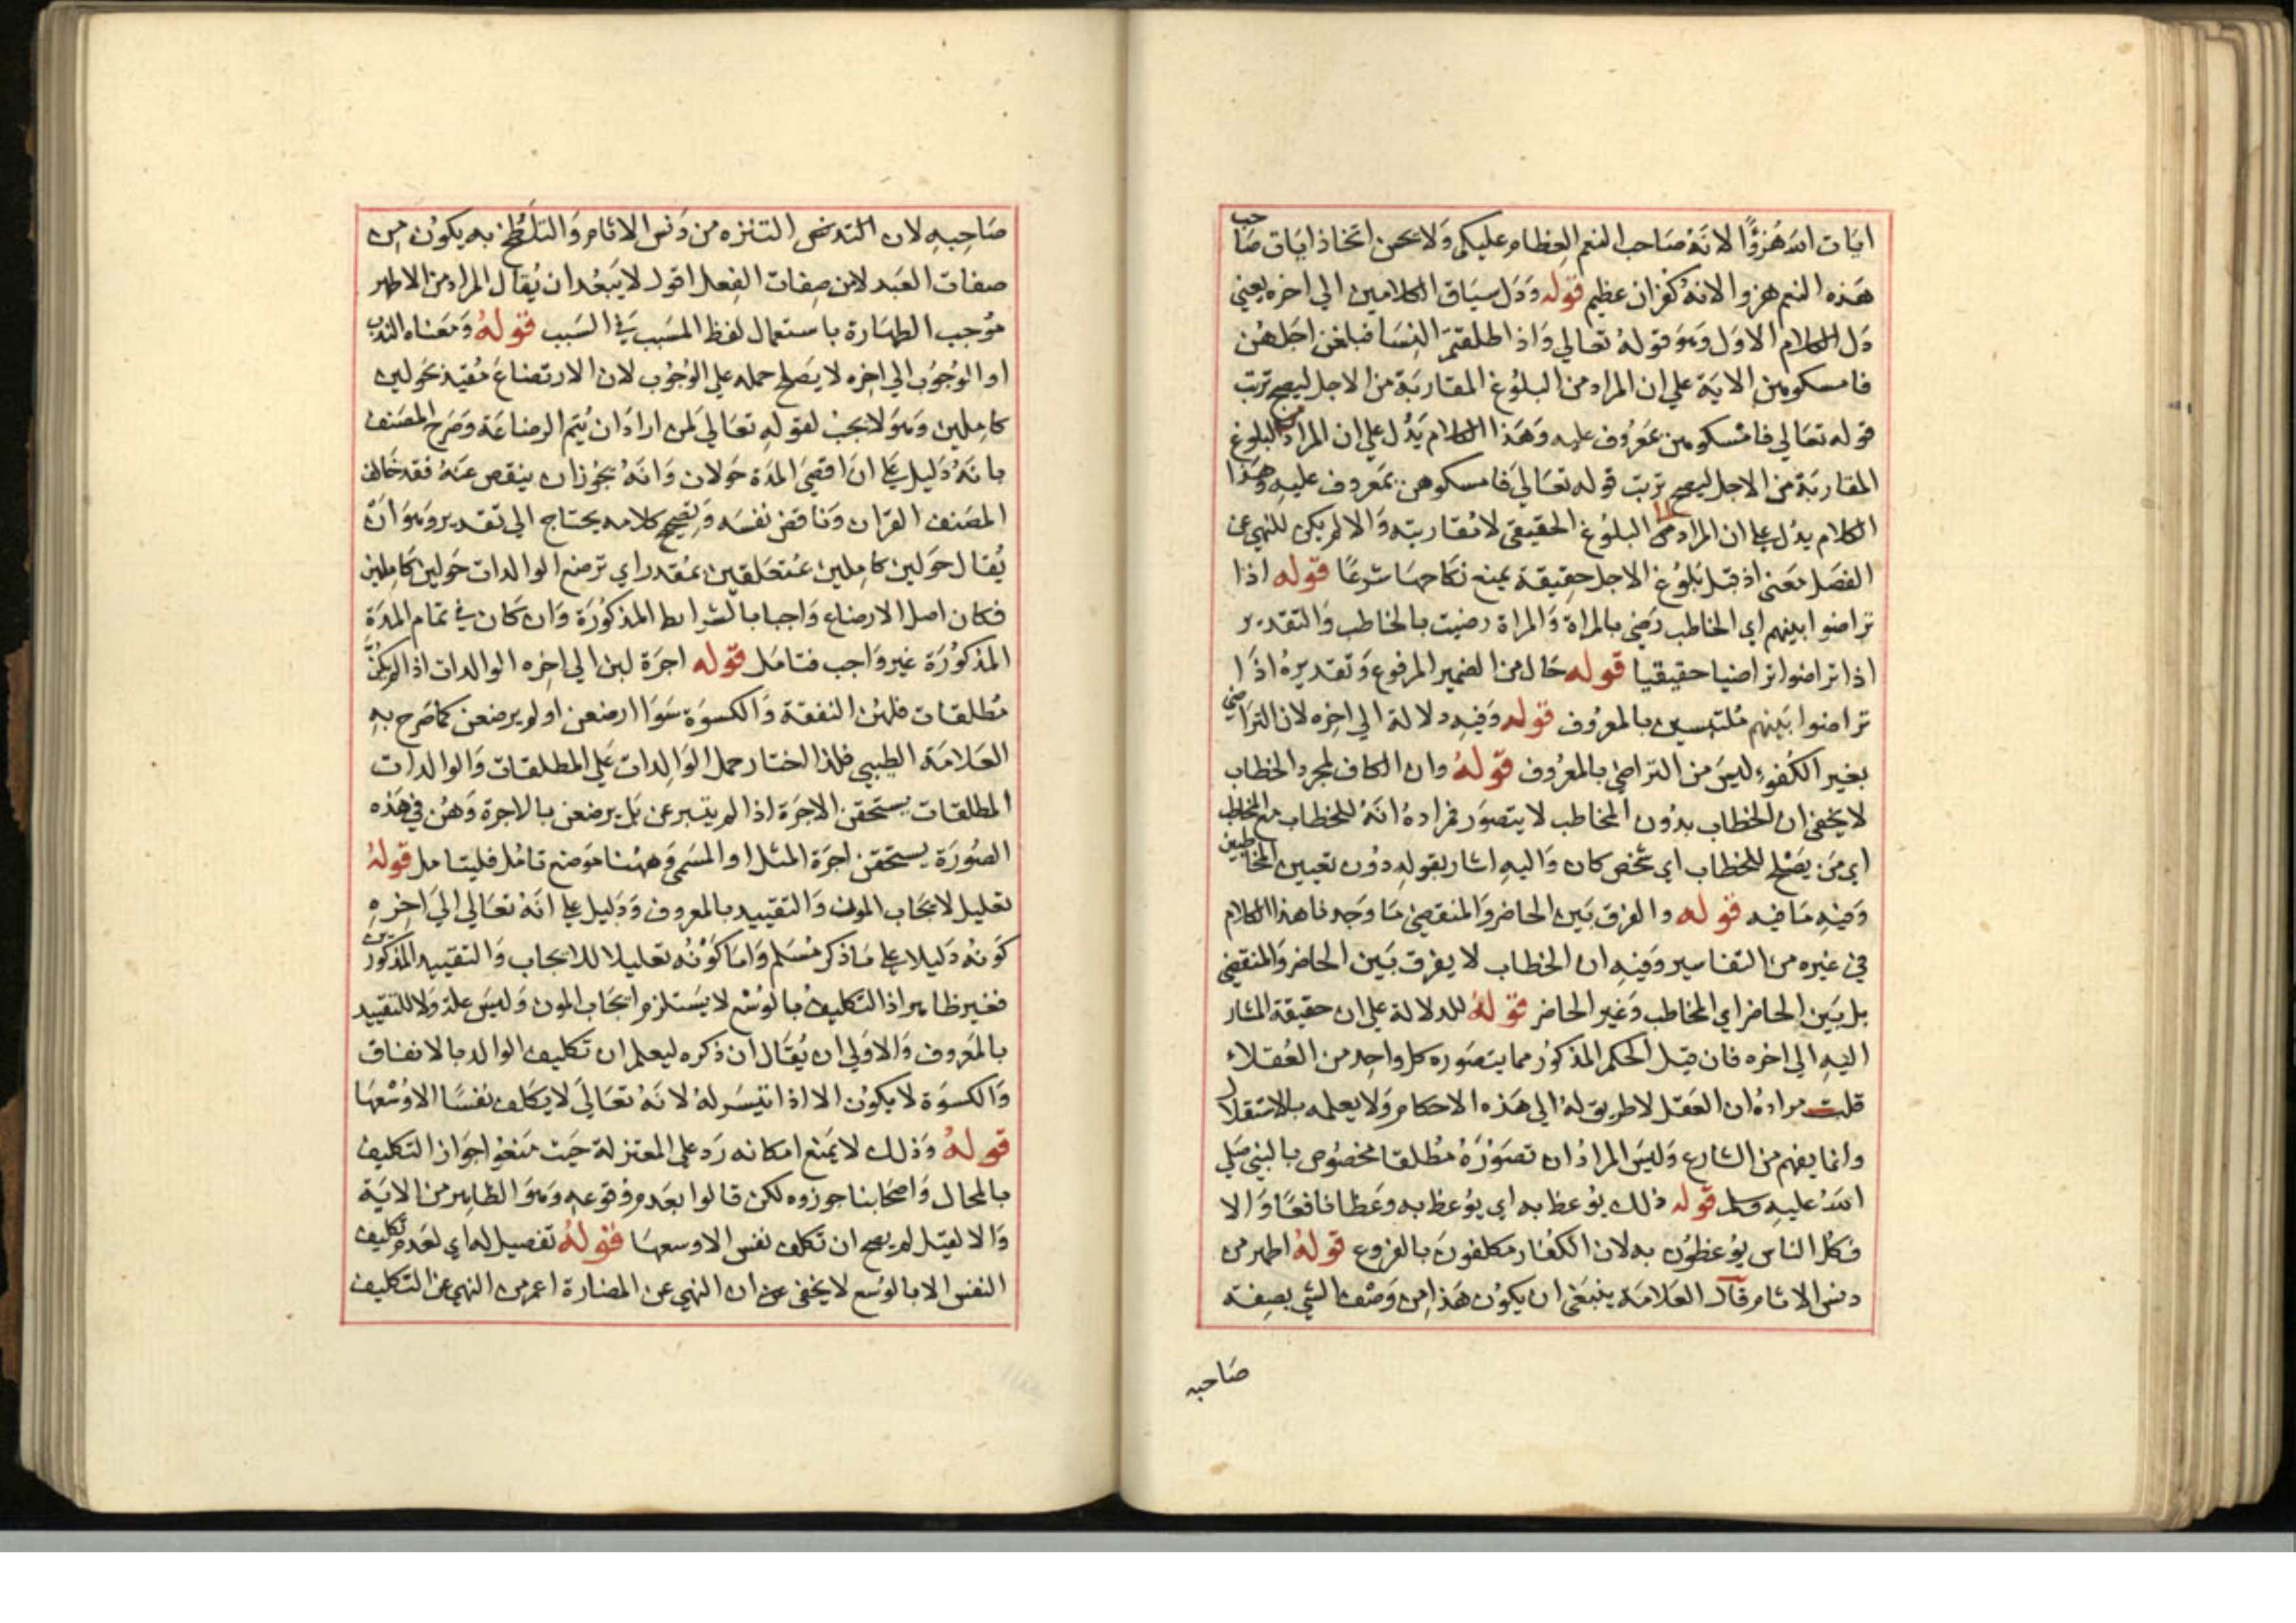 ايات الله هزوًا لانه صاحب النعم العظام عليكم ولا يحسن اتخاذ ايات صاحب
هذه النعم هزوا لانه كفران عظيم قوله ودل سياق الكلامين الي اخره يعني
دل الكلام الاول وهو قوله تعالي واذا طلقتم النسا فبلغن اجلهن
فامسكوهن الاية علي ان المراد من البلوغ المقاربة من الاجل ليصح ترتب
قوله تعالي فامسكوهن بمعروف عليه وهذا الكلام يدل علي ان المراد من البلوغ
المقاربة من الاجل ليصح ترتب قوله تعالي فامسكوهن بمعروف عليه وهذا
الكلام يدل علي ان المراد من البلوغ الحقيقي لا مقاربته والا لم يكن للنهي عن
الفصل معني اذ قبل بلوغ الاجل حقيقة يمنع نكاحها شرعًا قوله اذا
تراضوا بينهم اي الخاطب رضي بالمراة والمراة رضيت بالخاطب والتقدير
اذا تراضوا تراضيا حقيقيا قوله حال من الضمير المرفوع وتقديره اذا
تراضوا بينهم ملتبسين بالمعروف قوله وفيه دلالة الي اخره لان التراضي
بغير الكفوء ليس من التراضي بالمعروف قوله وان الكاف لمجرد الخطاب
لا يخفي ان الخطاب بدون المخاطب لا يتصور فمراده انه للخطاب مع المخاطب
اي من يصلح للخطاب اي شخص كان واليه اشار بقوله دون تعيين المخاطبين
وفيه ما فيه قوله والفرق بين الحاضر والمنقضي ما وجدنا هذا الكلام
في غيره من التفاسير وفيه ان الخطاب لا يفرق بين الحاضر والمنقضي
بل بين الحاضر اي المخاطب وغير الحاضر قوله للدلالة علي ان حقيقة المشار
اليه الي اخره فان قيل الحكم المذكور مما يتصوره كل واحد من العقلاء
قلت مراده ان العقل لا طريق له الي هذه الاحكام ولا يعلمه بالاستقلال
وانما يفهم من الشارع وليس المراد ان تصوره مطلقا مخصوص بالنبي صلي
الله عليه وسلم قوله ذلك يوعظ به اي يوعظ به وعظا نافعًا والا
فكل الناس يوعظون به لان الكفار مكلفون بالفروع قوله اطهر من
دنس الاثام قال العلامة ينبغي ان يكون هذا من وصف الشي بصفة
صاحبه
صاحبه لان التنزه من دنس الاثام والتلطخ به يكون من
صفات العبد لا من صفات الفعل اقول لا يبعد ان يقال المراد من الاطهر
موجب الطهارة باستعمال لفظ المسبب في السبب قوله ومعناه الندب
او الوجوب الي اخره لا يصلح حمله علي الوجوب لان الارتضاع مقيد بحولين
كاملين وهو لا يجب لقوله تعالي لمن اراد ان يتم الرضاعة وصرح المصنف
بانه دليل علي ان اقصي المدة حولان وانه يجوز ان ينقص عنه فقد خالف
المصنف القران وناقض نفسه وتصحيح كلامه يحتاج الي تقدير وهو ان
يقال حولين كاملين متعلقين بمقدر اي ترضع الوالدات حولين كاملين
فكان اصل الارضاع واجبا بالشرايط المذكورة وان كان في تمام المدة
المذكورة غير واجب فتامل قوله اجرة لبن الي اخره الوالدات اذا لم يكن
مطلقات فلهن النفقة والكسوة سوا ارضعن او لم يرضعن كما صرح به
العلامة الطيبي فلذا اختار حمل الوالدات علي المطلقات والوالدات
المطلقات يستحقن الاجرة اذا لم يتبرعن بل يرضعن بالاجرة وهن في هذه
الصورة يستحقن اجرة المثل او المسمي وههنا موضع تامل فليتامل قوله
تعليل لايجاب المون والتقييد بالمعروف ودليل علي انه تعالي الي اخره
كونه دليلا علي ما ذكر مسلم واما كونه تعليلا للايجاب والتقييد المذكورين
فغير ظاهر اذ التكليف بالوسع لا يستلزم ايجاب المون وليس علة ولا للتقييد
بالمعروف والاولي ان يقال ان ذكره ليعلم ان تكليف الوالد بالانفاق
والكسوة لا يكون الا اذا تيسر له لانه تعالي لا يكلف نفسًا الا وسعها
قوله وذلك لا يمنع امكانه رد علي المعتزلة حيث منعوا جواز التكليف
بالمحال واصحابنا جوزوه لكن قالوا بعدم وقوعه وهو الظاهر من الاية
والا لقيل لم يصح ان تكلف نفس الا وسعها قوله تفصيل له اي لعدم تكليف
النفس الا بالوسع لا يخفي ان النهي عن المضارة اعم من النهي عن التكليف